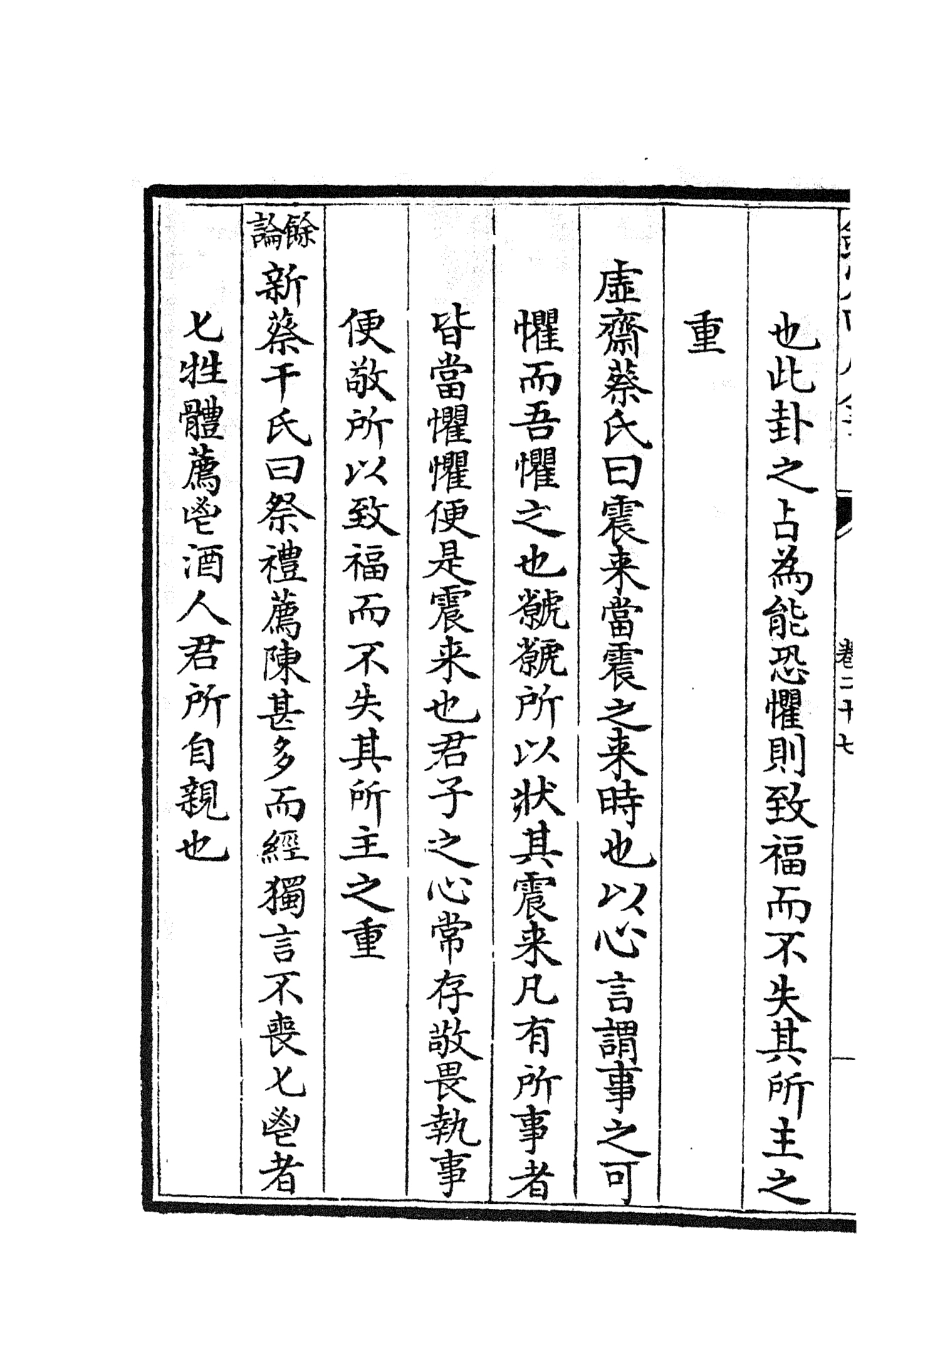 卷二十七
也此卦之占為能恐懼則致福而不失其所主之
重
虛齋蔡氏曰震来當震之来時也以心言謂事之可
懼而吾懼之也虩虩所以狀其震来凡有所事者
皆當懼懼便是震来也君子之心常存敬畏執事
便敬所以致福而不失其所主之重
餘論
新蔡干氏曰祭禮薦陳甚多而經獨言不喪匕鬯者
匕牲體薦鬯酒人君所自親也